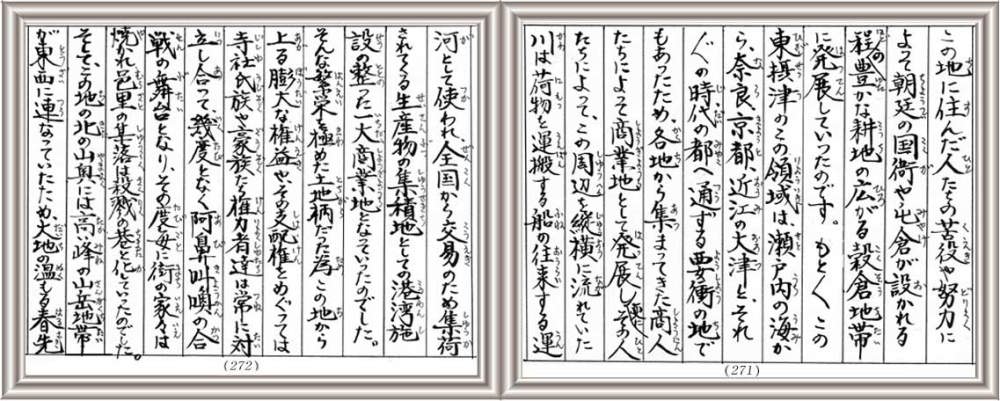 この地に住んだ人たちの苦役や努力に
よって朝廷の国衙や屯倉が設かれる
程豊かな耕地の広がる穀倉地帯
に発展していったのです。もと〱この
東摂津のこの領域は、瀬戸内の海か
ら、奈良、京都、近江の大津と、それ
〲の時代の都へ通ずる要衝の地で
もあったため、各地から集まってきた商人
たちによって商業地として発展し、その人
たちによって、この周辺を縦横に流れていた
川は荷物を運搬する船の往来する運
(271)
河として使われ、全国から交易のため集荷
されてくる生産物の集積地としての港湾施
設の整った一大商業地となっていったのでした。
そんな繁栄を極めた土地柄だった為この地から
上る膨大な権益や、その支配権をめぐっては
寺社、氏族や豪族なら権力者達は常に対
立し合って、幾度となく阿鼻叫喚の合
戦の舞台となり、その度毎に街の家々は
焼かれ邑里の集落は殺戮の巷と化していったのでした。
そして、この地の北の山奥には高峰の山岳地帯
が東西に連なっていたため、大地の温もる春先
(272)